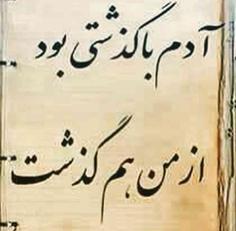 آدم با گذشتی بود
از من هم گذشت